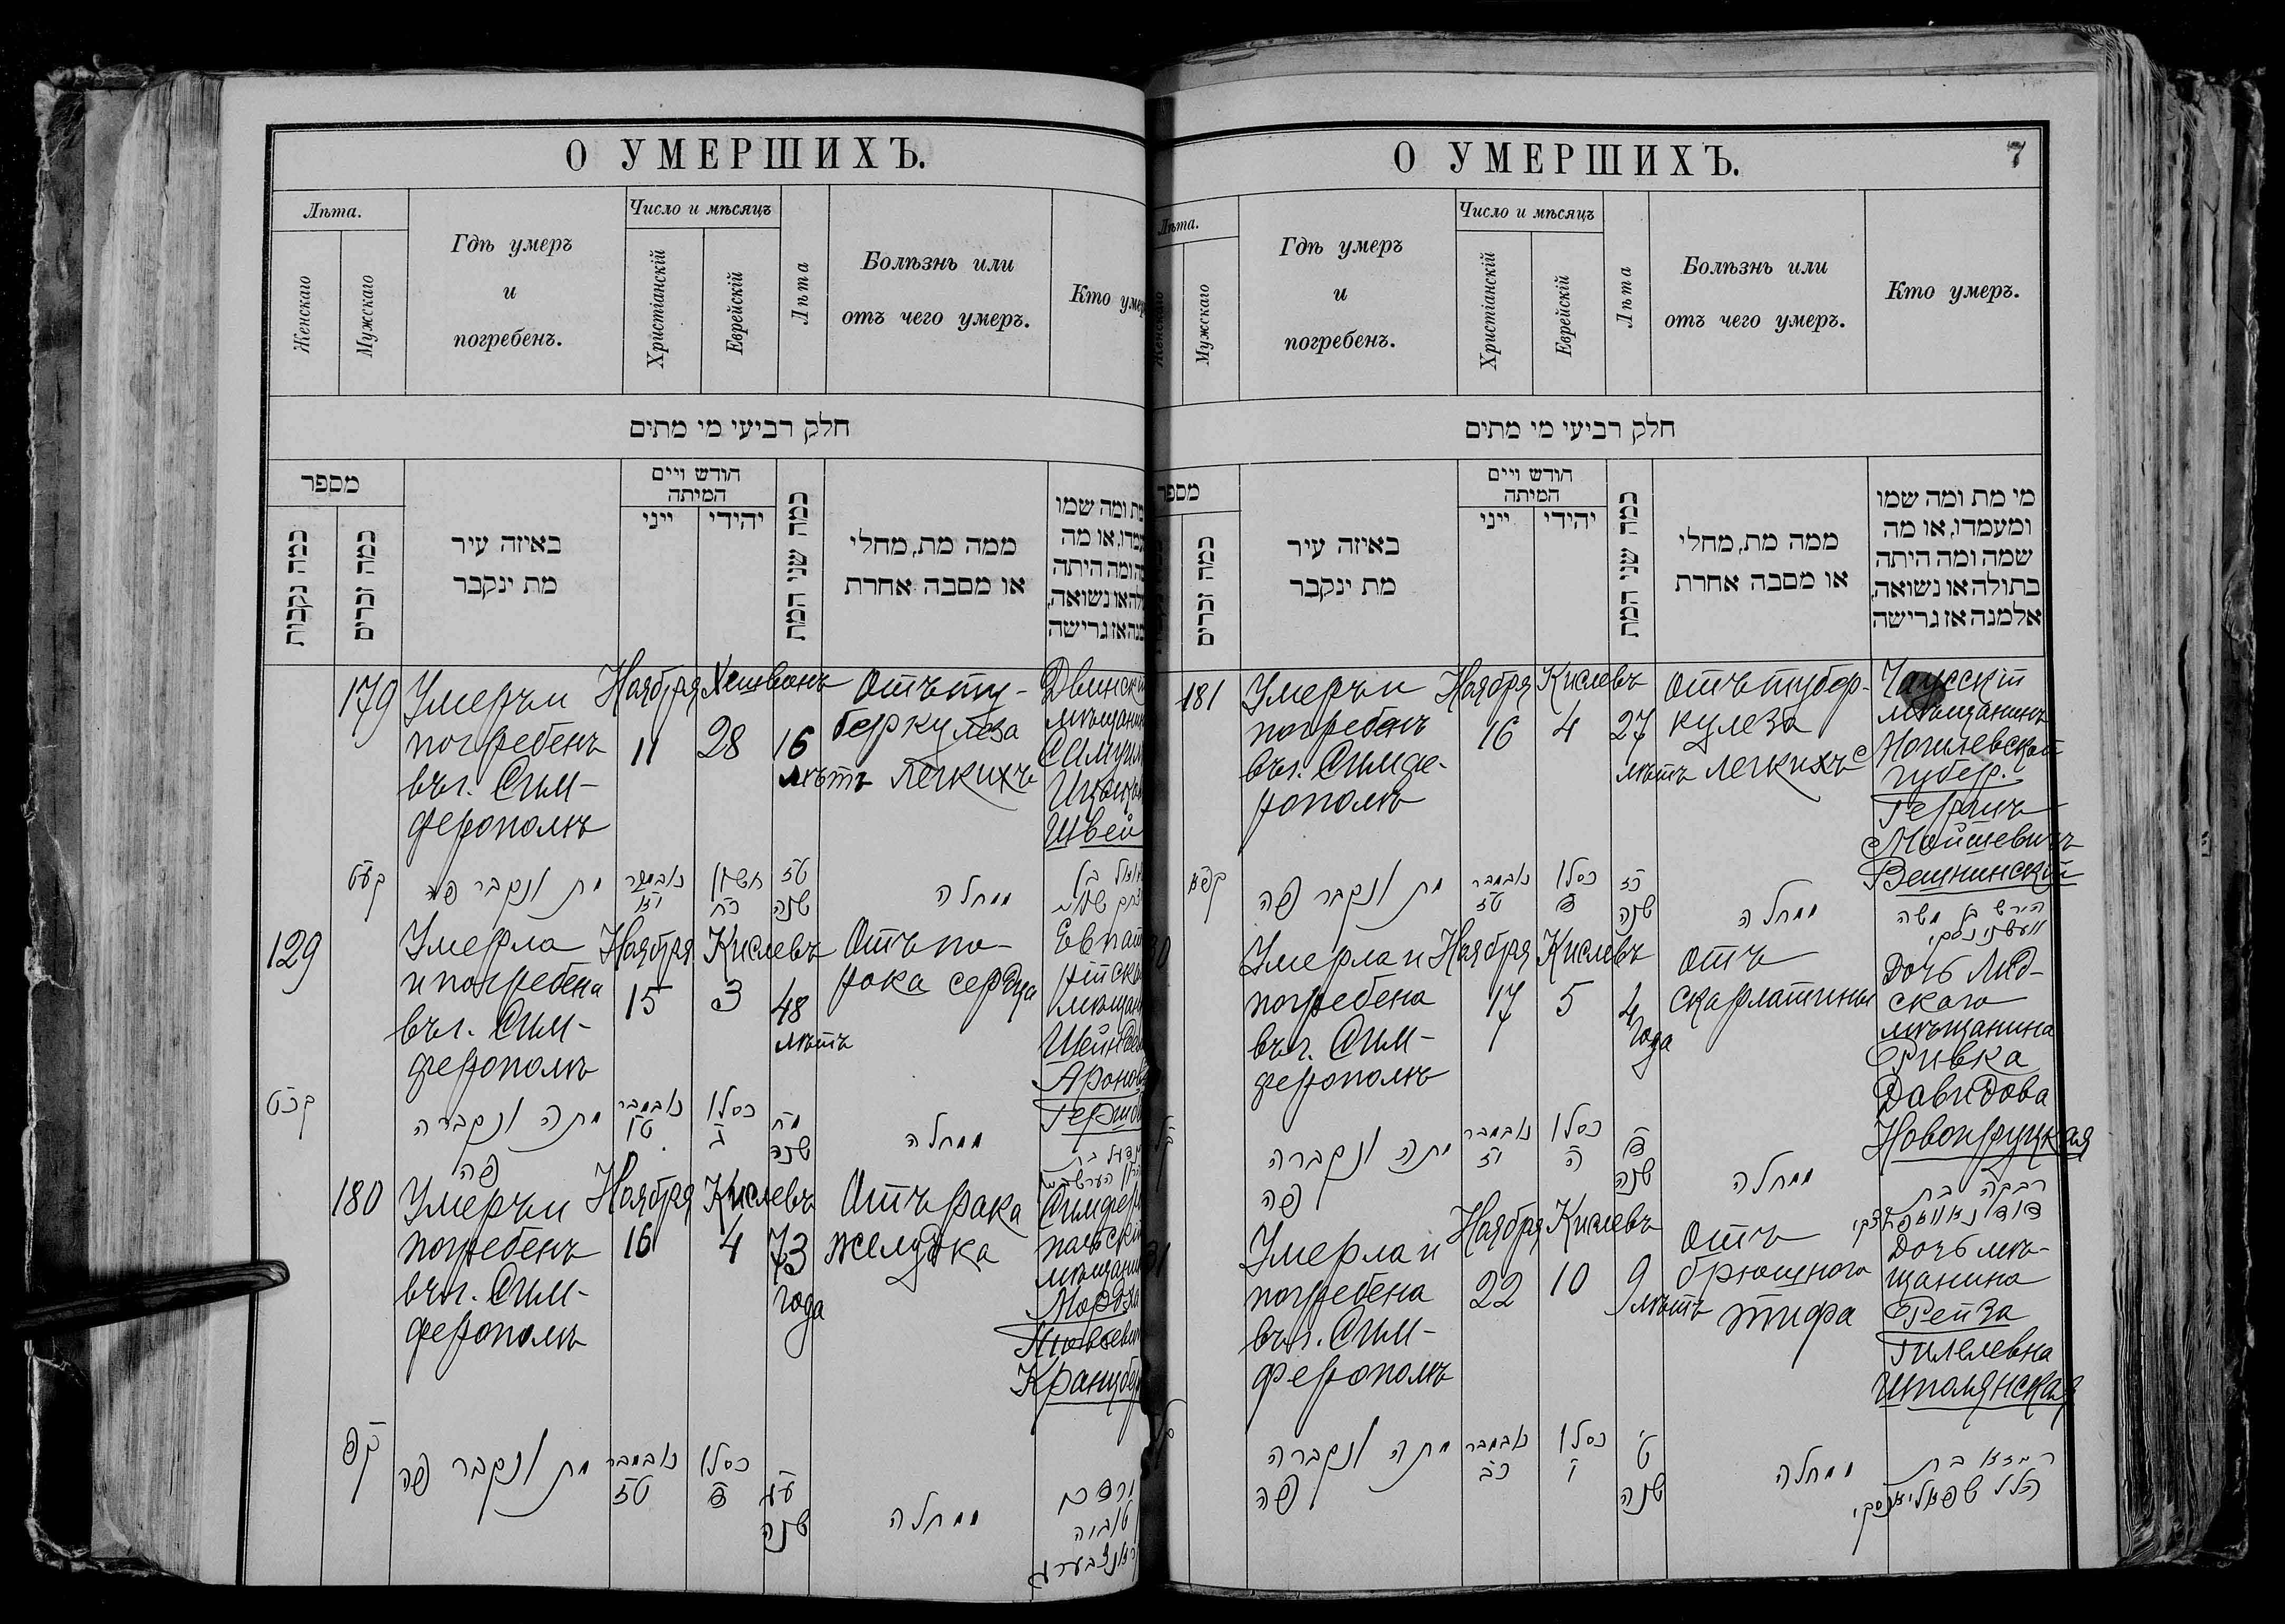 О УМЕРШИХЪ.
Лѣта.
Женскаго
Мужскаго
Гдѣ умеръ
и
погребенъ.
Число и мѣсяцъ
Христіанскій
Еврейскій
Лѣта
Болѣзнь или
отъ чего умеръ.
Кто умер
חלק רביעי מי מתים
מספר
כמה נקבות
כמה זכרים
באיזה עיר
מת ינקבר
חודש ויים
המיתה
ייני
יהודי
כמה שני המת
ממה מת, מחלי
או מסבה אחרת
מת ומה שמו
ומה היתה
או נשואה,
גרישה
179
Умеръ и
погребенъ
въ г. Сим-
ферополѣ
Ноября
11
Хешванъ
28
16
лѣтъ
Отъ ту-
беркулеза
легкихъ
Двинскій
мѣщанин
Самуил
Ицык
Швей
קעט
מת ונקבר פה
נאבמבר
יא
חשון
כח
טז
שנה
ממחלה
129
Умерла
и погребена
въ г. Сим-
ферополѣ
Ноября
15
Кислевъ
3
48
лѣтъ
Отъ по-
рока сердца
Евпато
рійская
мѣщан
Шейндель
Аронов
Гершов
קכט
מתה ונקברה
פה
נאבמבר
טו
כסלו
ג
מח
שנה
ממחלה
180
Умеръ и
погребенъ
въ г. Сим-
ферополѣ
Ноября
16
Кислевъ
4
73
года
Отъ рака
желудка
Симферо
польскій
мѣщанин
Мордхай
Кранцбер
קפ
מת ונקבר פה
נאבמבר
טז
כסלו
ד
עג
שנה
ממחלה
טוביה
קראנצבערג
О УМЕРШИХЪ.
7
Лѣта.
Женскаго
Мужскаго
Гдѣ умеръ
и
погребенъ.
Число и мѣсяцъ
Христіанскій
Еврейскій
Лѣта
Болѣзнь или
отъ чего умеръ.
Кто умеръ.
חלק רביעי מי מתים
מספר
כמה זכרים
באיזה עיר
מת ינקבר
חודש ויים
המיתה
ייני
יהודי
כמה שני המת
ממה מת, מחלי
או מסבה אחרת
מי מת ומה שמו
ומעמדו, או מה
שמה ומה היתה
בתולה או נשואה,
אלמנה אז גרישה
181
Умеръ и
погребенъ
въ г. Симфе-
рополѣ
Ноября
16
Кислевъ
4
27
лѣтъ
Отъ тубер-
кулеза
легкихъ
Чаусскій
мѣщанинъ
Могилевской
губер.
Гершъ
Мойшевичъ
Вешнинскій
קפא
מת ונקבר פה
נאבמבר
טז
כסלו
ד
כז
שנה
ממחלה
הירש בן משה
וועשנינסקי
30
Умерла и
погребена
въ г. Сим-
ферополѣ
Ноября
17
Кислевъ
5
4
года
Отъ
скарлатины
Дочь Лид-
скаго
мѣщанина
Ривка
Давидова
Новопруцкая
מתה ונקברה
פה
נאבמבר
יז
כסלו
ה
ד
שנה
ממחלה
רבקה בת
דוד
31
Умерла и
погребена
въ г. Сим-
ферополѣ
Ноября
22
Кислевъ
10
9
лѣтъ
Отъ
брюшного
тифа
Дочь мѣ-
щанина
Рейза
Гилелевна
Шполянская
מתה ונקברה
פה
נאבמבר
כב
כסלו
י
ט
שנה
ממחלה
בת
הלל שפאליאנסקי